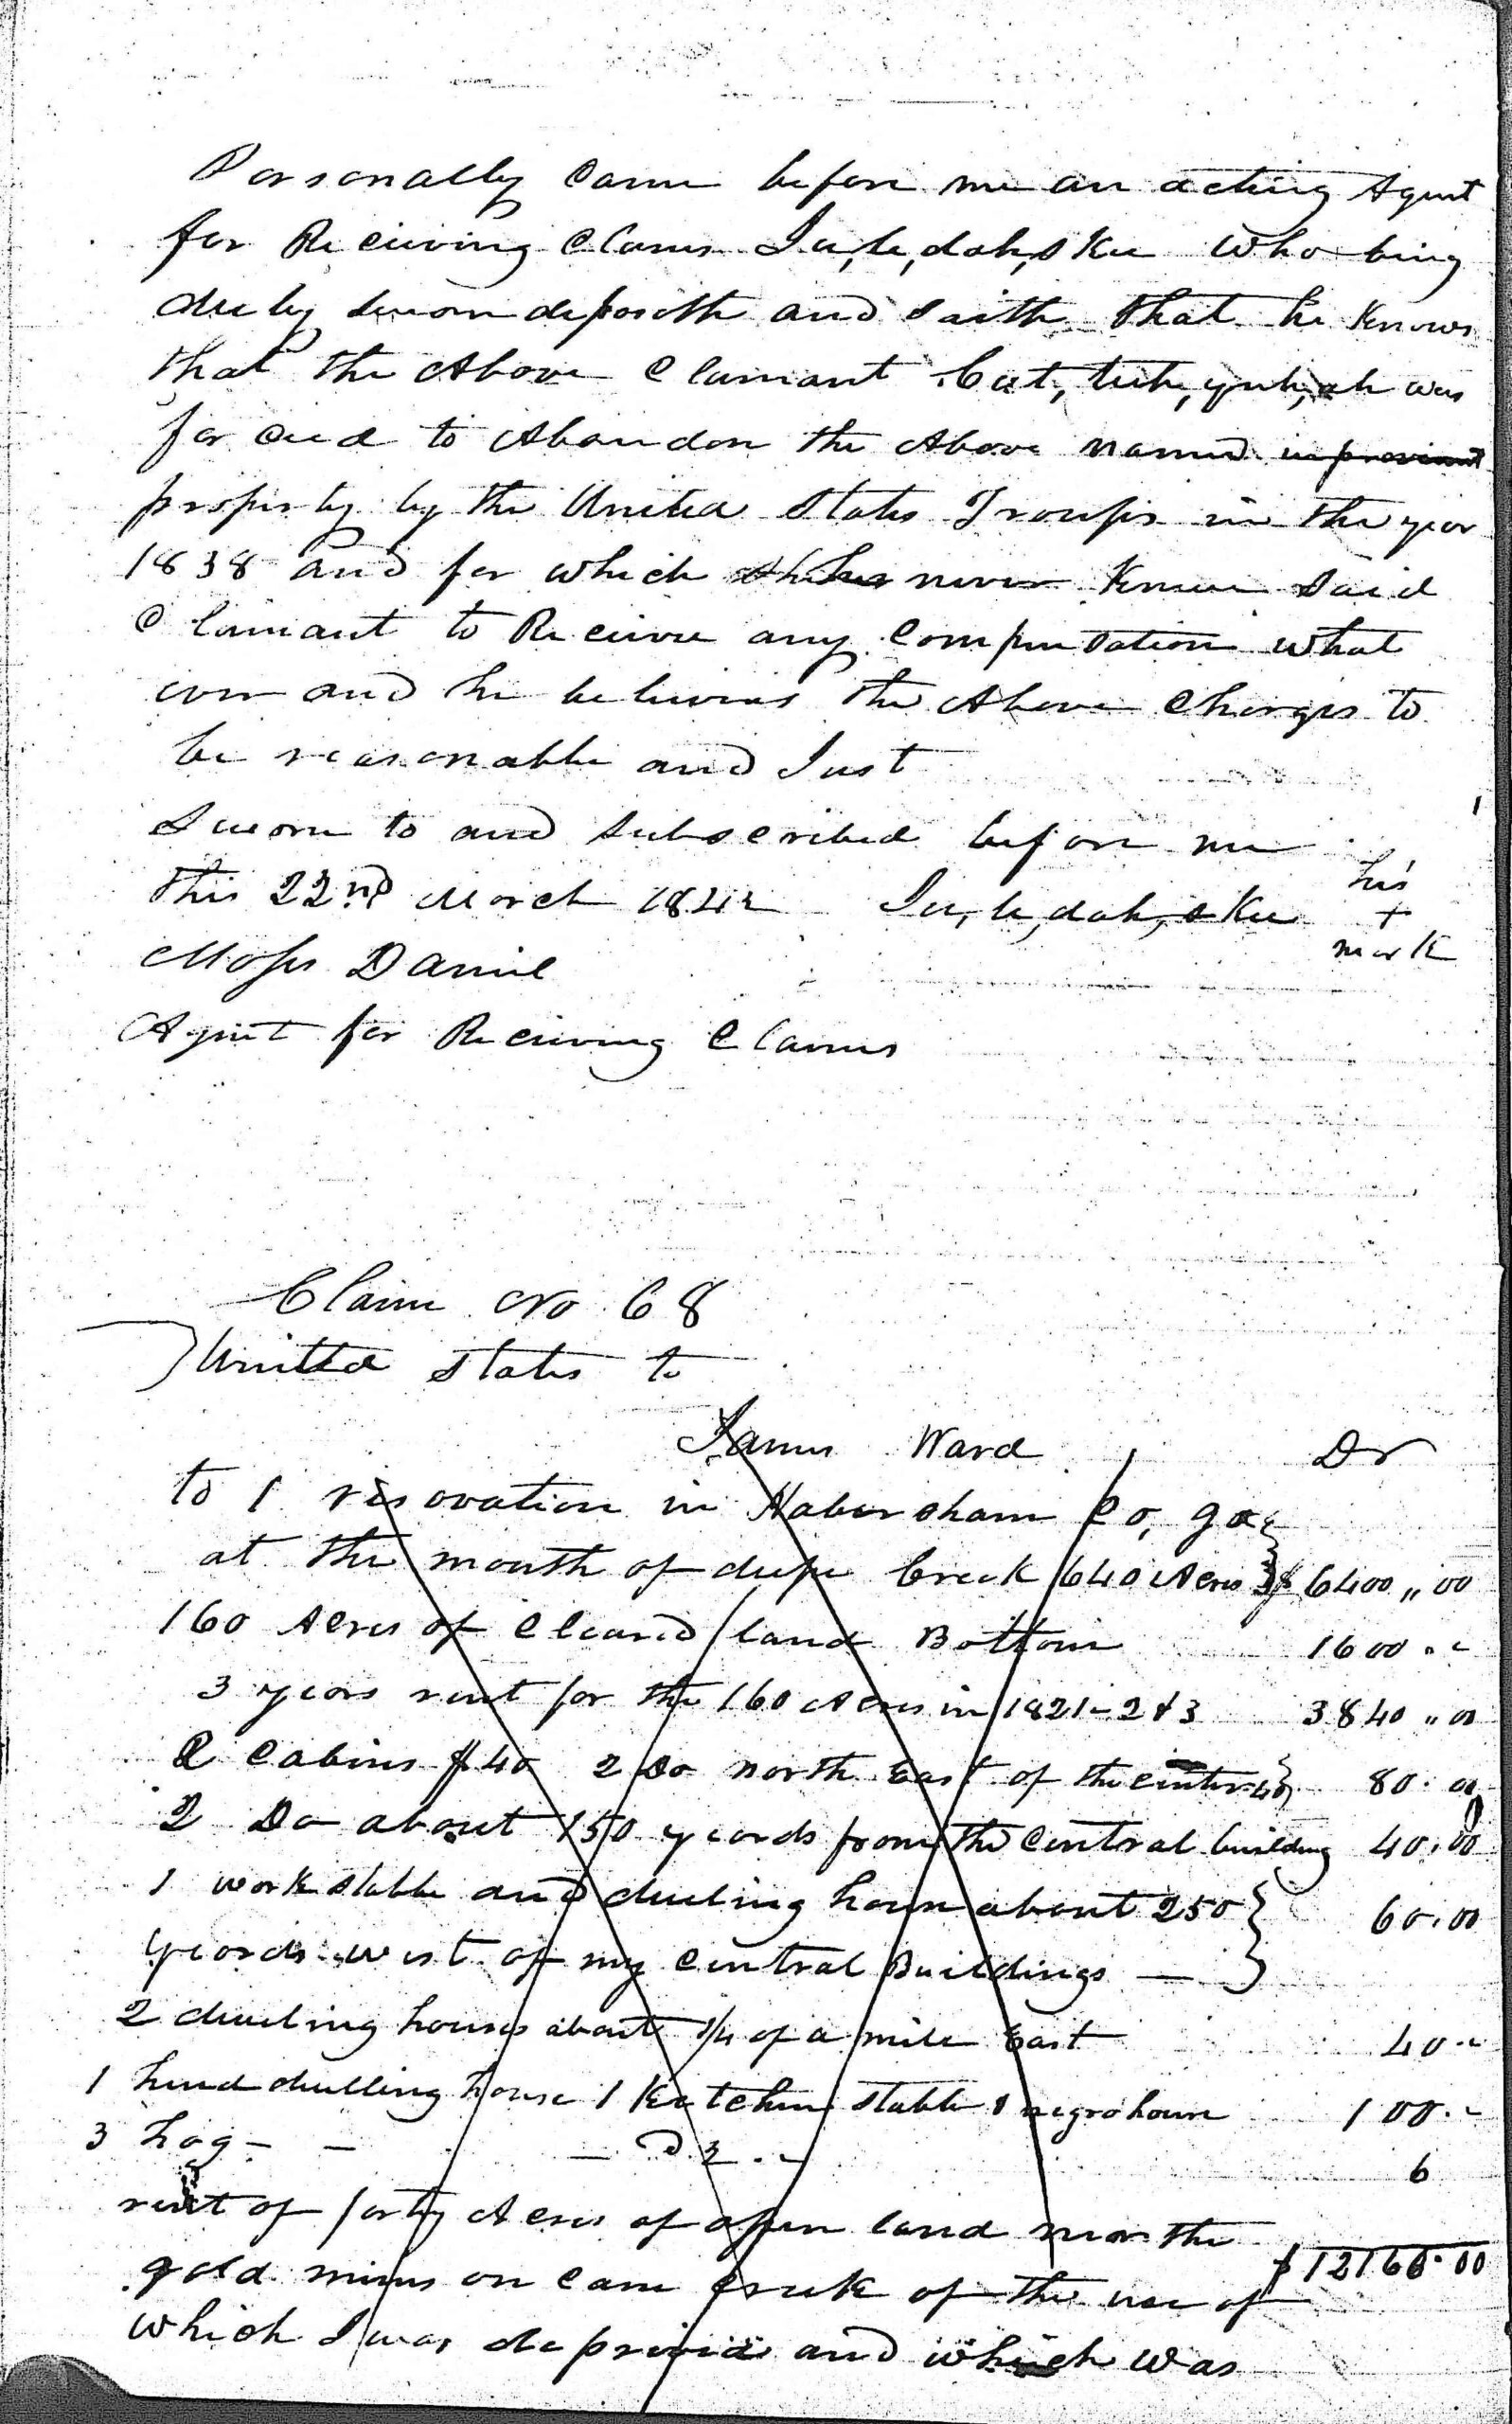 Personally Came before me an acting Agent
for Receiving Claims Ju,le,dah,skee Who being
duly sworn deposeth and saith that he knows
that the Above Claimant was
forced to Abandon the Above named improvement
property by the United States Troups in the year
1838 and for which never knew said
Claimant to Receive any Compensation what
ever and he believes the Above Charges to
be reasonable and Just
Sworn to and Subscribed before me
this 22nd March 1842 Ju,le,dah,skee his
+
mark
Moses Daniel
Agent for Receiving Claims
Claim No 68
United States to
James Ward Dr
to 1 reservation in Habersham Co, ga
at the mouth of deepe Creek 640 Acres $ 6400 ,, 00
160 Acres of Cleared land Bottom 1600 . "
3 years rent for the 160 Acres in 1821 - 2 & 3 3840 ,, 00
2 Cabins $40 2 Do North East of the center 40 80. 00
2 Do about 150 yeards from the Central building 40. 00
1 work stable and dweling house about 250 60. 00
yeards west of my Central Buildings —
2 dweling houses about 1/4 of a mile East 40 . "
1 hued dwelling house 1 Ketchen stable & negro house 100 . "
3 hog - - 6
rent of forty Acres of open land near the
gold mines on Cane creek of the use of $12166.00
which I was deprived and which was